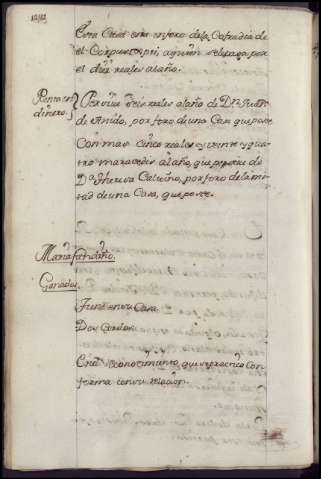 Esta Casa está en foro de la Cofradía de
el Corpus Xpti, a quien se le paga por
el diez reales al año.
Renta en
dinero.
Percive seis reales al año de Dn. Juan
de Anido, por foro de una Casa que posee
Con mas cinco reales y veinte y qua-
tro maravedis al año, que percive de
Da. Theresa Calviño, por foro de la mi-
tad de una Casa, que posee.
Maria fandiño.
Ganados.
Tiene en su Casa
Dos Cerdos.
Cuio reconocimiento, que se practicó con-
forma con su relacion.